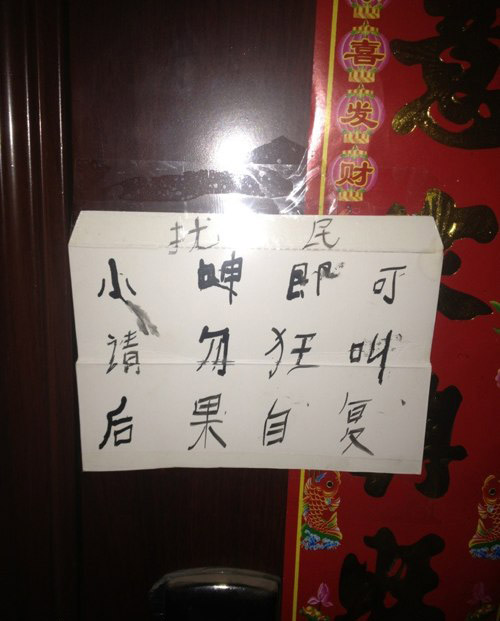 喜发财
扰民
小呻即可
请勿狂叫
后果自复